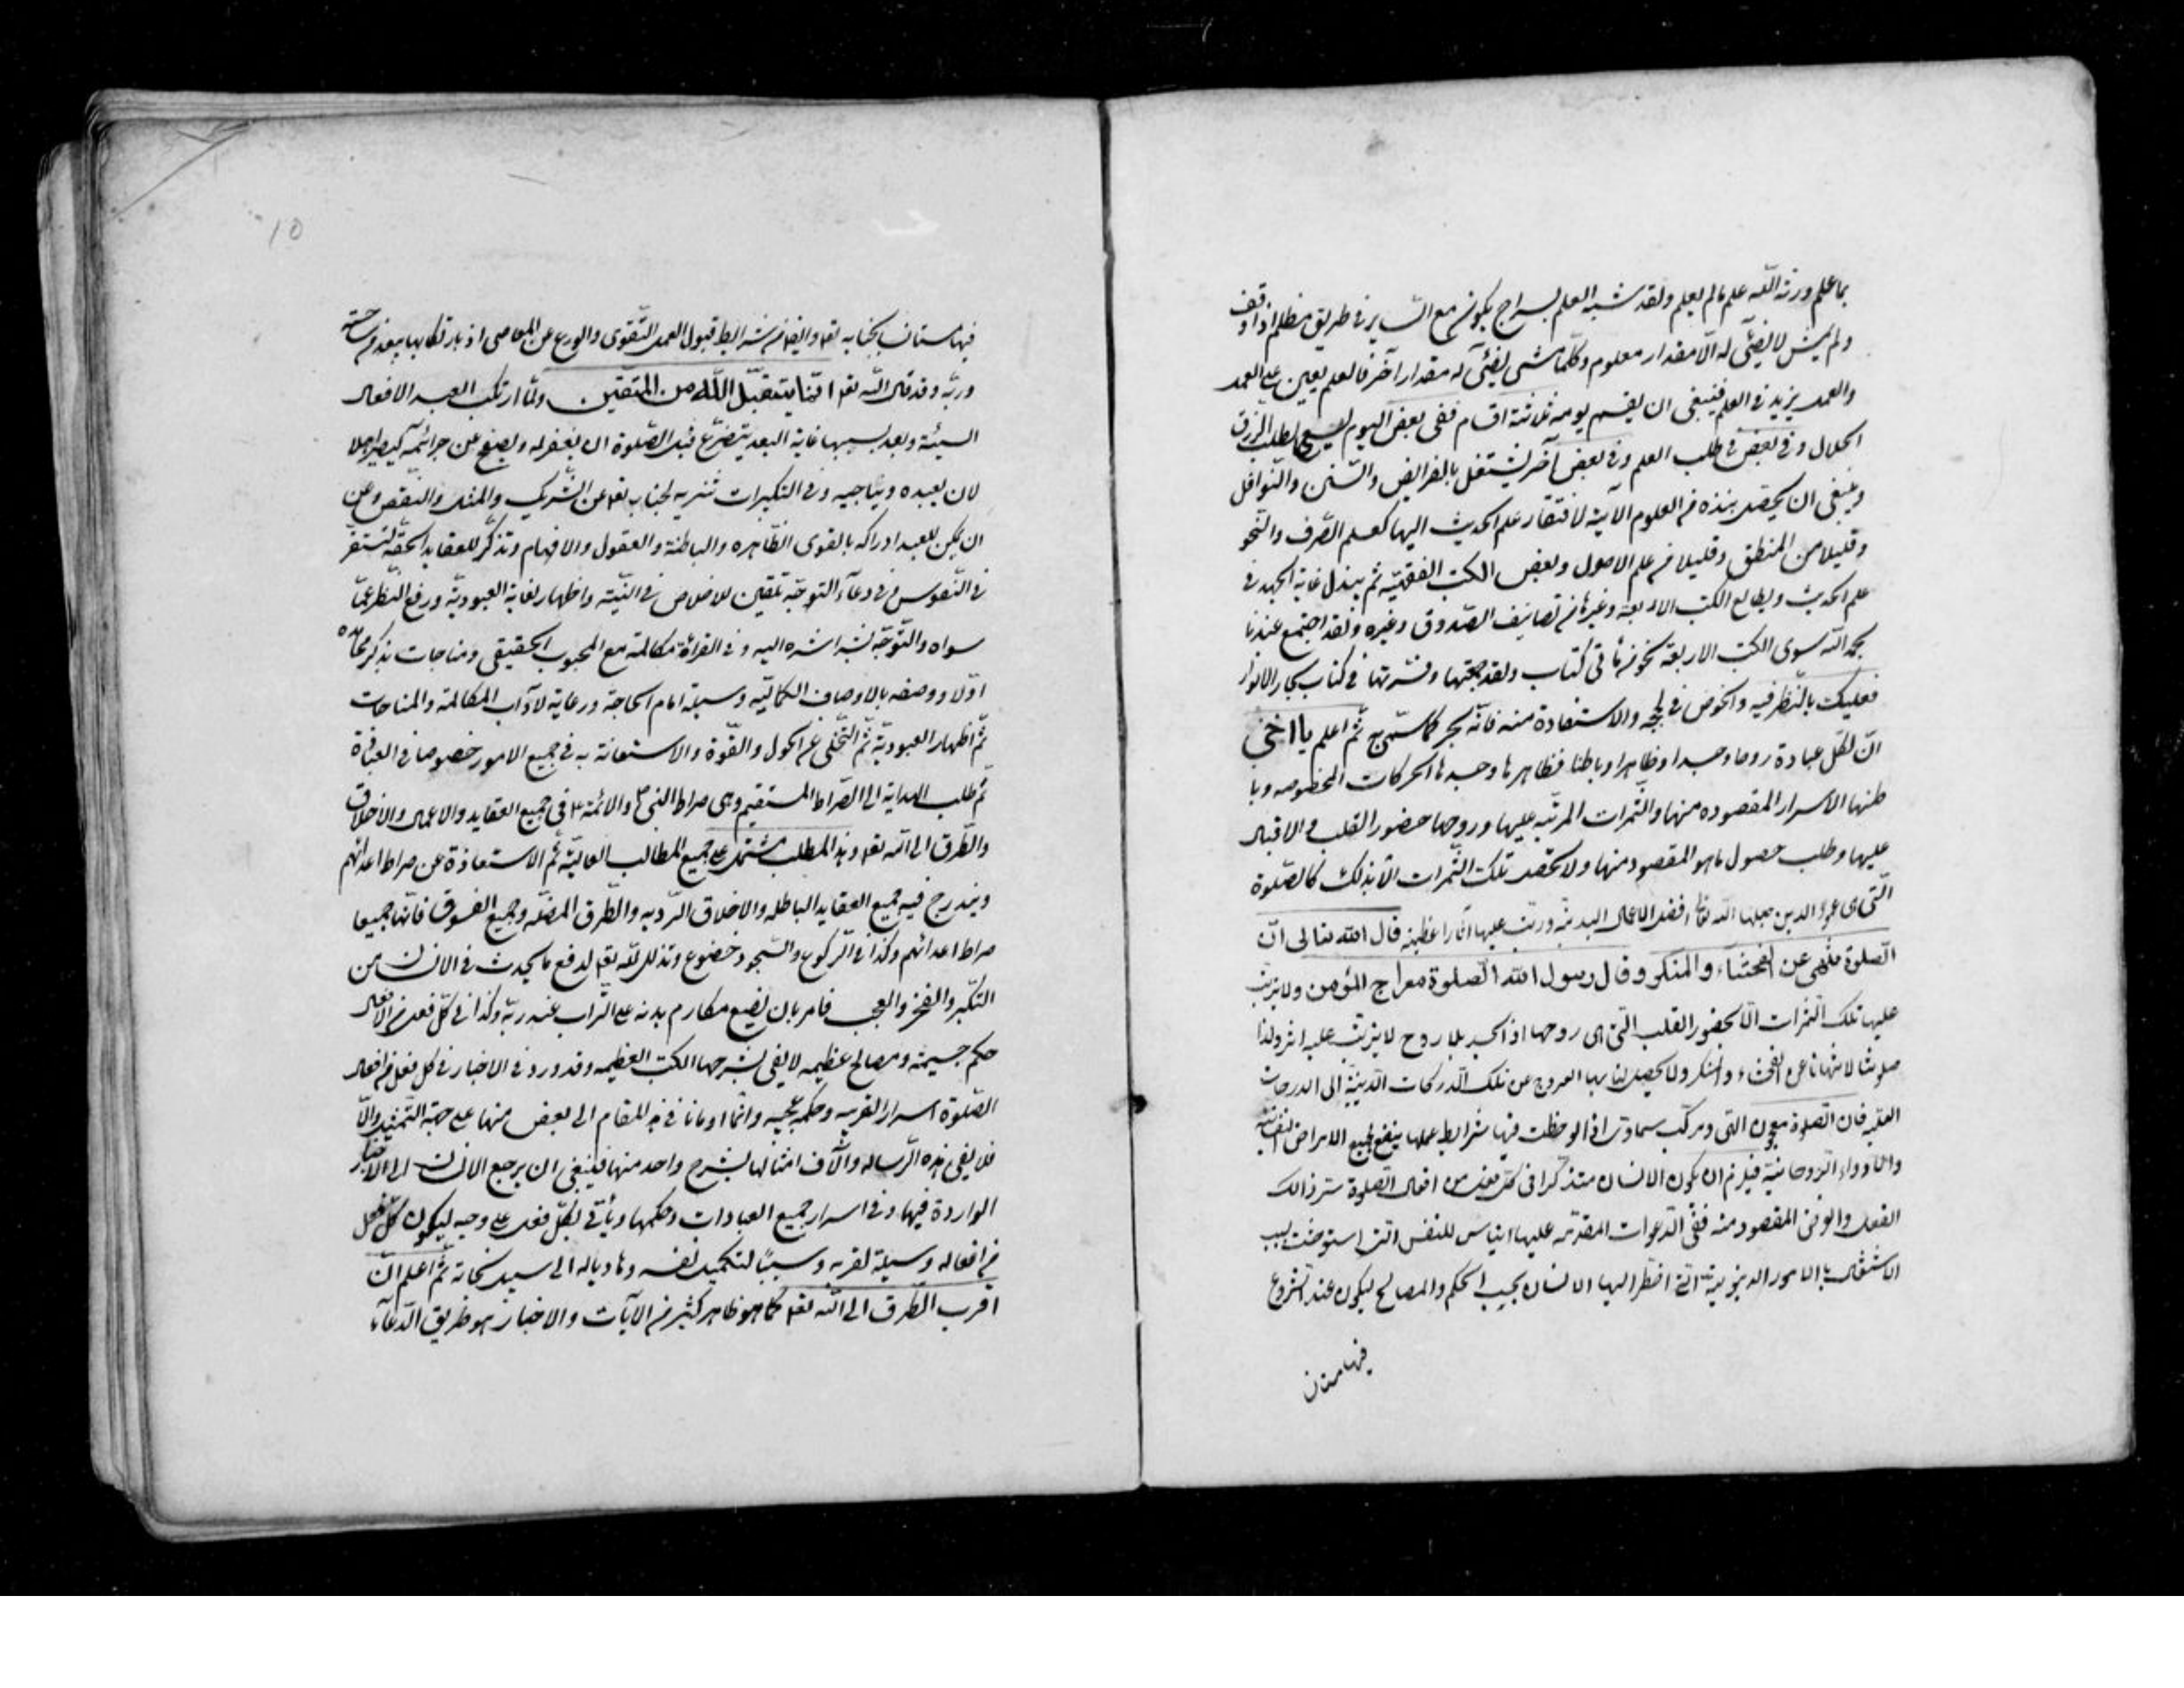 بما علم ورثه الله علم ما لم يعلم ولقد شبه العلم بسراج يكون مع الساير في طريق مظلم اذا وقف
ولم يمش لا يضئ له الا مقدار معلوم وكلما مشى يضئ له مقدار آخر فالعلم يعين على العمل
والعمل يزيد في العلم فينبغي ان يقسم يومه ثلاثة اقسام ففي بعض اليوم يسعى لطلب الرزق
الحلال وفي بعض في طلب العلم وفي بعض آخر يشتغل بالفرايض والسنن والنوافل
وينبغي ان يحصل نبذه من العلوم الآلية لافتقار علم الحديث اليها كعلم الصرف والنحو
وقليلا من المنطق وقليلا من علم الاصول وبعض الكتب الفقهية ثم يبذل غاية الجهد في
علم الحديث ويطالع الكتب الاربعة وغيرها من تصانيف الصدوق وغيره ولقد اجتمع عندنا
بحمد الله سوى الكتب الاربعة نحو من مأتي كتاب ولقد جمعتها وفسرتها في كتاب بحار الانوار
فعليك بالنظر فيه والخوض في لججه والاستفادة منه فانه بحر كما سمي به ثم اعلم يا اخي
ان لكل عبادة روحا وجسدا وظاهرا وباطنا فظاهرها وجسدها الحركات المخصوصه وبا
طنها الاسرار المقصوده منها والثمرات المرتبه عليها وروحها حضور القلب والاقبال
عليها وطلب حصول ما هو المقصود منها ولا تحصل تلك الثمرات الا بذلك كالصلوة
التي هي عمود الدين جعلها الله تعالى افضل الاعمال البدنية ورتب عليها آثارا عظيمة قال الله تعالى ان
الصلوة تنهى عن الفحشاء والمنكر وقال رسول الله الصلوة معراج المؤمن ولا يترتب
عليها تلك الثمرات الا بحضور القلب التي هي روحها اذ الجسد بلا روح لا يترتب عليه اثر ولذا
صلوتنا لا تنهانا عن الفحشاء والمنكر ولا يحصل لنا بها العروج عن تلك الدركات الدنية الى الدرجات
العليه فان الصلوة معجون الهي ومركب سماوي اذا لوحظت فيها شرايط عملها ينفع لجميع الامراض النفسانية
والادواء الروحانية فيلزم ان يكون الانسان متذكرا في كل فعل من افعال الصلوة سر ذالك
الفعل والغرض المقصود منه ففي الدعوات المقدمه عليها ايناس للنفس التي استوحشت بسبب
الاشتغال بالامور الدنيوية التي اضطر اليها الانسان بحسب الحكم والمصالح ليكون عند الشروع
فيها مستان
10
فيها مستان بجنابه تعا وايضا من شرايط قبول العمل التقوى والورع عن المعاصي اذ بارتكابها يبعد من ساحة
وربه وقد قال الله تعا انما يتقبل الله من المتقين ولما ارتكب العبد الافعال
السيئة وبعد بسببها غاية البعد يتضرع قبل الصلوة ان يغفر له ويصفح عن جرائمه كي يصير اهلا
لان يعبده ويناجيه وفي التكبيرات تنزيه لجنابه تعا عن الشريك والمثل والنقص وعن
ان يكن للعبد ادراكه بالقوى الظاهره والباطنة والعقول والافهام وتذكر للعقايد الحقه لتستقر
في النفوس وفي دعاء التوجه تلقين للاخلاص في النية واظهار لغاية العبودية ورفع النظر عما
سواه والتوجه بشراشره اليه وفي القراءة مكالمة مع المحبوب الحقيقي ومناجات بذكر محامده
اولا ووصفه بالاوصاف الكمالية وسيلة امام الحاجة ورعاية لآداب المكالمة والمناجات
ثم اظهار العبودية ثم التخلي عن الحول والقوة والاستعانة به في جميع الامور خصوصا في العبادة
ثم طلب الهداية الى الصراط المستقيم وهي صراط النبي ص والائمة ع في جميع العقايد والاعمال والاخلاق
والطرق الى الله تعا وهذا المطلب مشتمل على جميع المطالب العالية ثم الاستعاذة عن صراط اعدائهم
ويندرج فيه جميع العقايد الباطله والاخلاق الرديه والطرق المضله وجميع الفسوق فانها جميعا
صراط اعدائهم وكذا في الركوع والسجود خضوع وتذلل لله تعا لدفع ما يحدث في الانسان من
التكبر والفخر والعجب فامر بان يضع مكارم بدنه على التراب عند ربه وكذا في كل فعل من الافعال
حكم جسيمة ومصالح عظيمه لا يفي بشرحها الكتب العظيمه وقد ورد في الاخبار في كل فعل من افعال
الصلوة اسرار الغريبه وحكم عجيبه وانما اومانا في هذا المقام الى بعض منها على جهة التمثيل والا
فلا يفي هذه الرساله وآلاف امثالها بشرح واحد منها فينبغي ان يرجع الانسان الى الاخبار
الواردة فيها وفي اسرار جميع العبادات وحكمها ويأتي بكل فعل على وجه ليكون كل فعل
من افعاله وسيلة لقربه وسببا لتكميل نفسه وهاديا له الى سبيل نجاته ثم اعلم ان
اقرب الطرق الى الله تعا كما هو ظاهر كثير من الآيات والاخبار هو طريق الدعاء